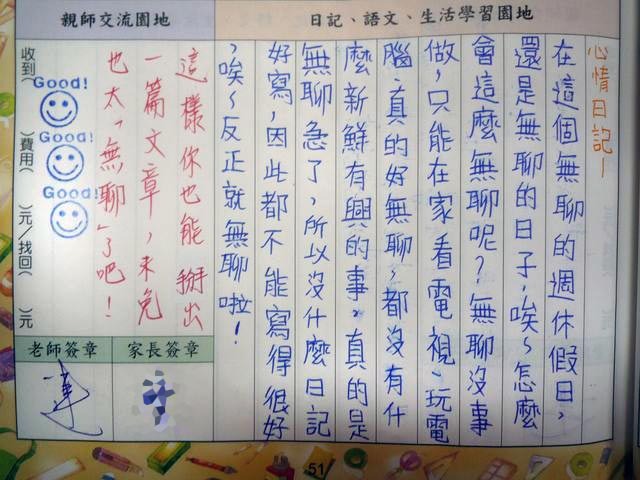 日記、語文、生活學習園地
心情日記一
在這個無聊的週休假日，
還是無聊的日子，唉～怎麼
會這麼無聊呢？無聊沒事
做，只能在家看電視、玩電
腦，真的好無聊，都沒有什
麼新鮮有興的事。真的是
無聊急了，所以沒什麼日記
好寫，因此都不能寫得很好
，唉～反正就無聊啦！
親師交流園地
這樣你也能掰出
一篇文章，未免
也太「無聊」了吧！
Good!
Good!
Good!
收到（　）費用（　）元／找回（　）元
家長簽章
老師簽章
51